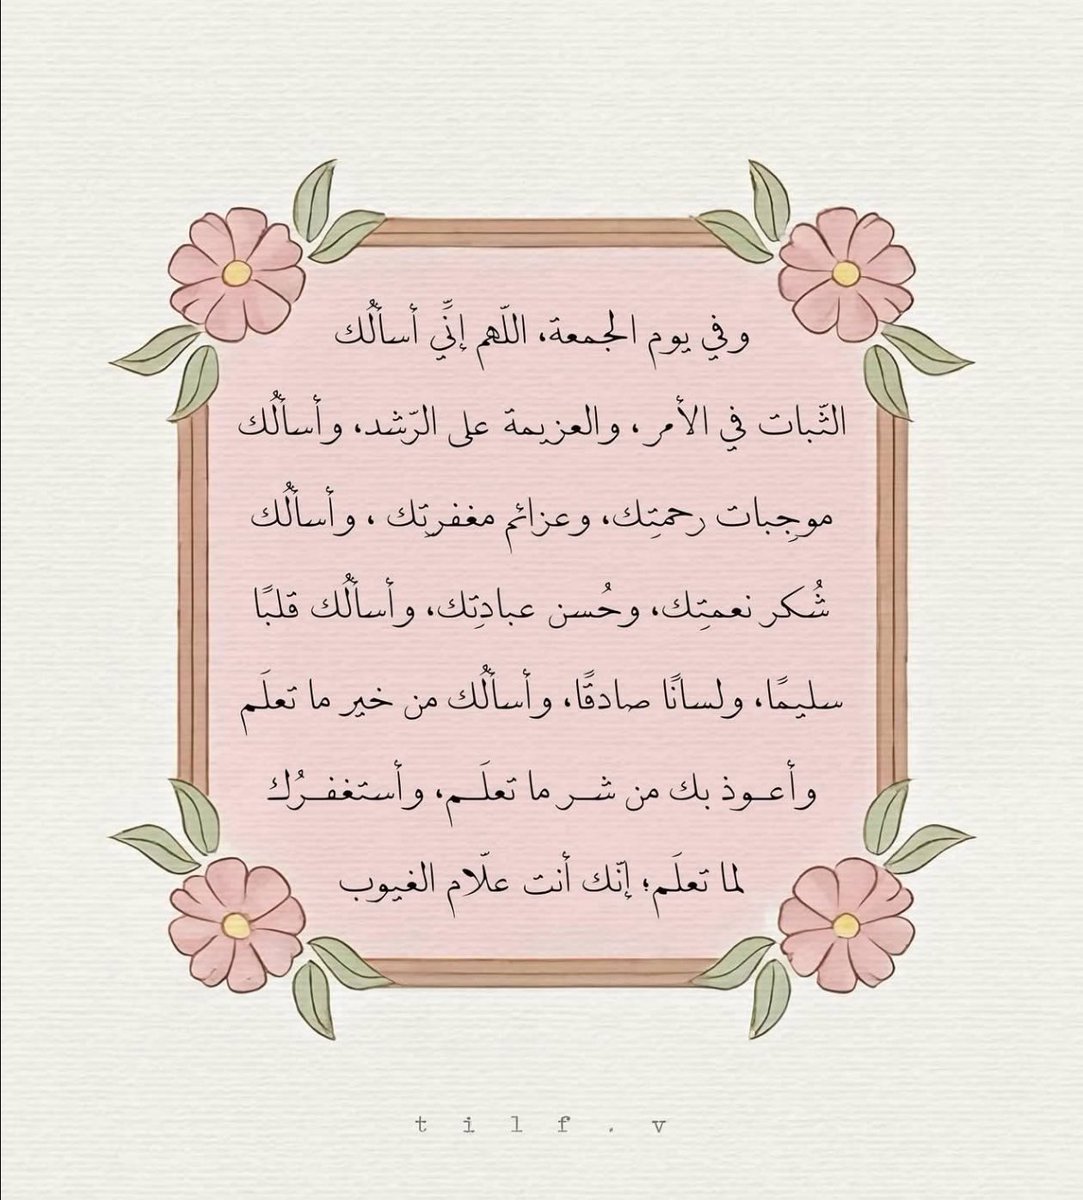 وفي يوم الجمعة، اللّهم إنِّي أسألُك
الثّبات في الأمر، والعزيمة على الرّشد، وأسألُك
موجِبات رحمتِك، وعزائم مغفرتِك ، وأسألُك
شُكر نعمتِك، وحُسن عبادتِك، وأسألُك قلبًا
سليمًا، ولسانًا صادقًا، وأسألُك من خير ما تعلَم
وأعـوذ بك من شـر ما تعلَـم، وأستغفـرُك
لما تعلَم؛ إنّك أنت علّام الغيوب
tilf.v